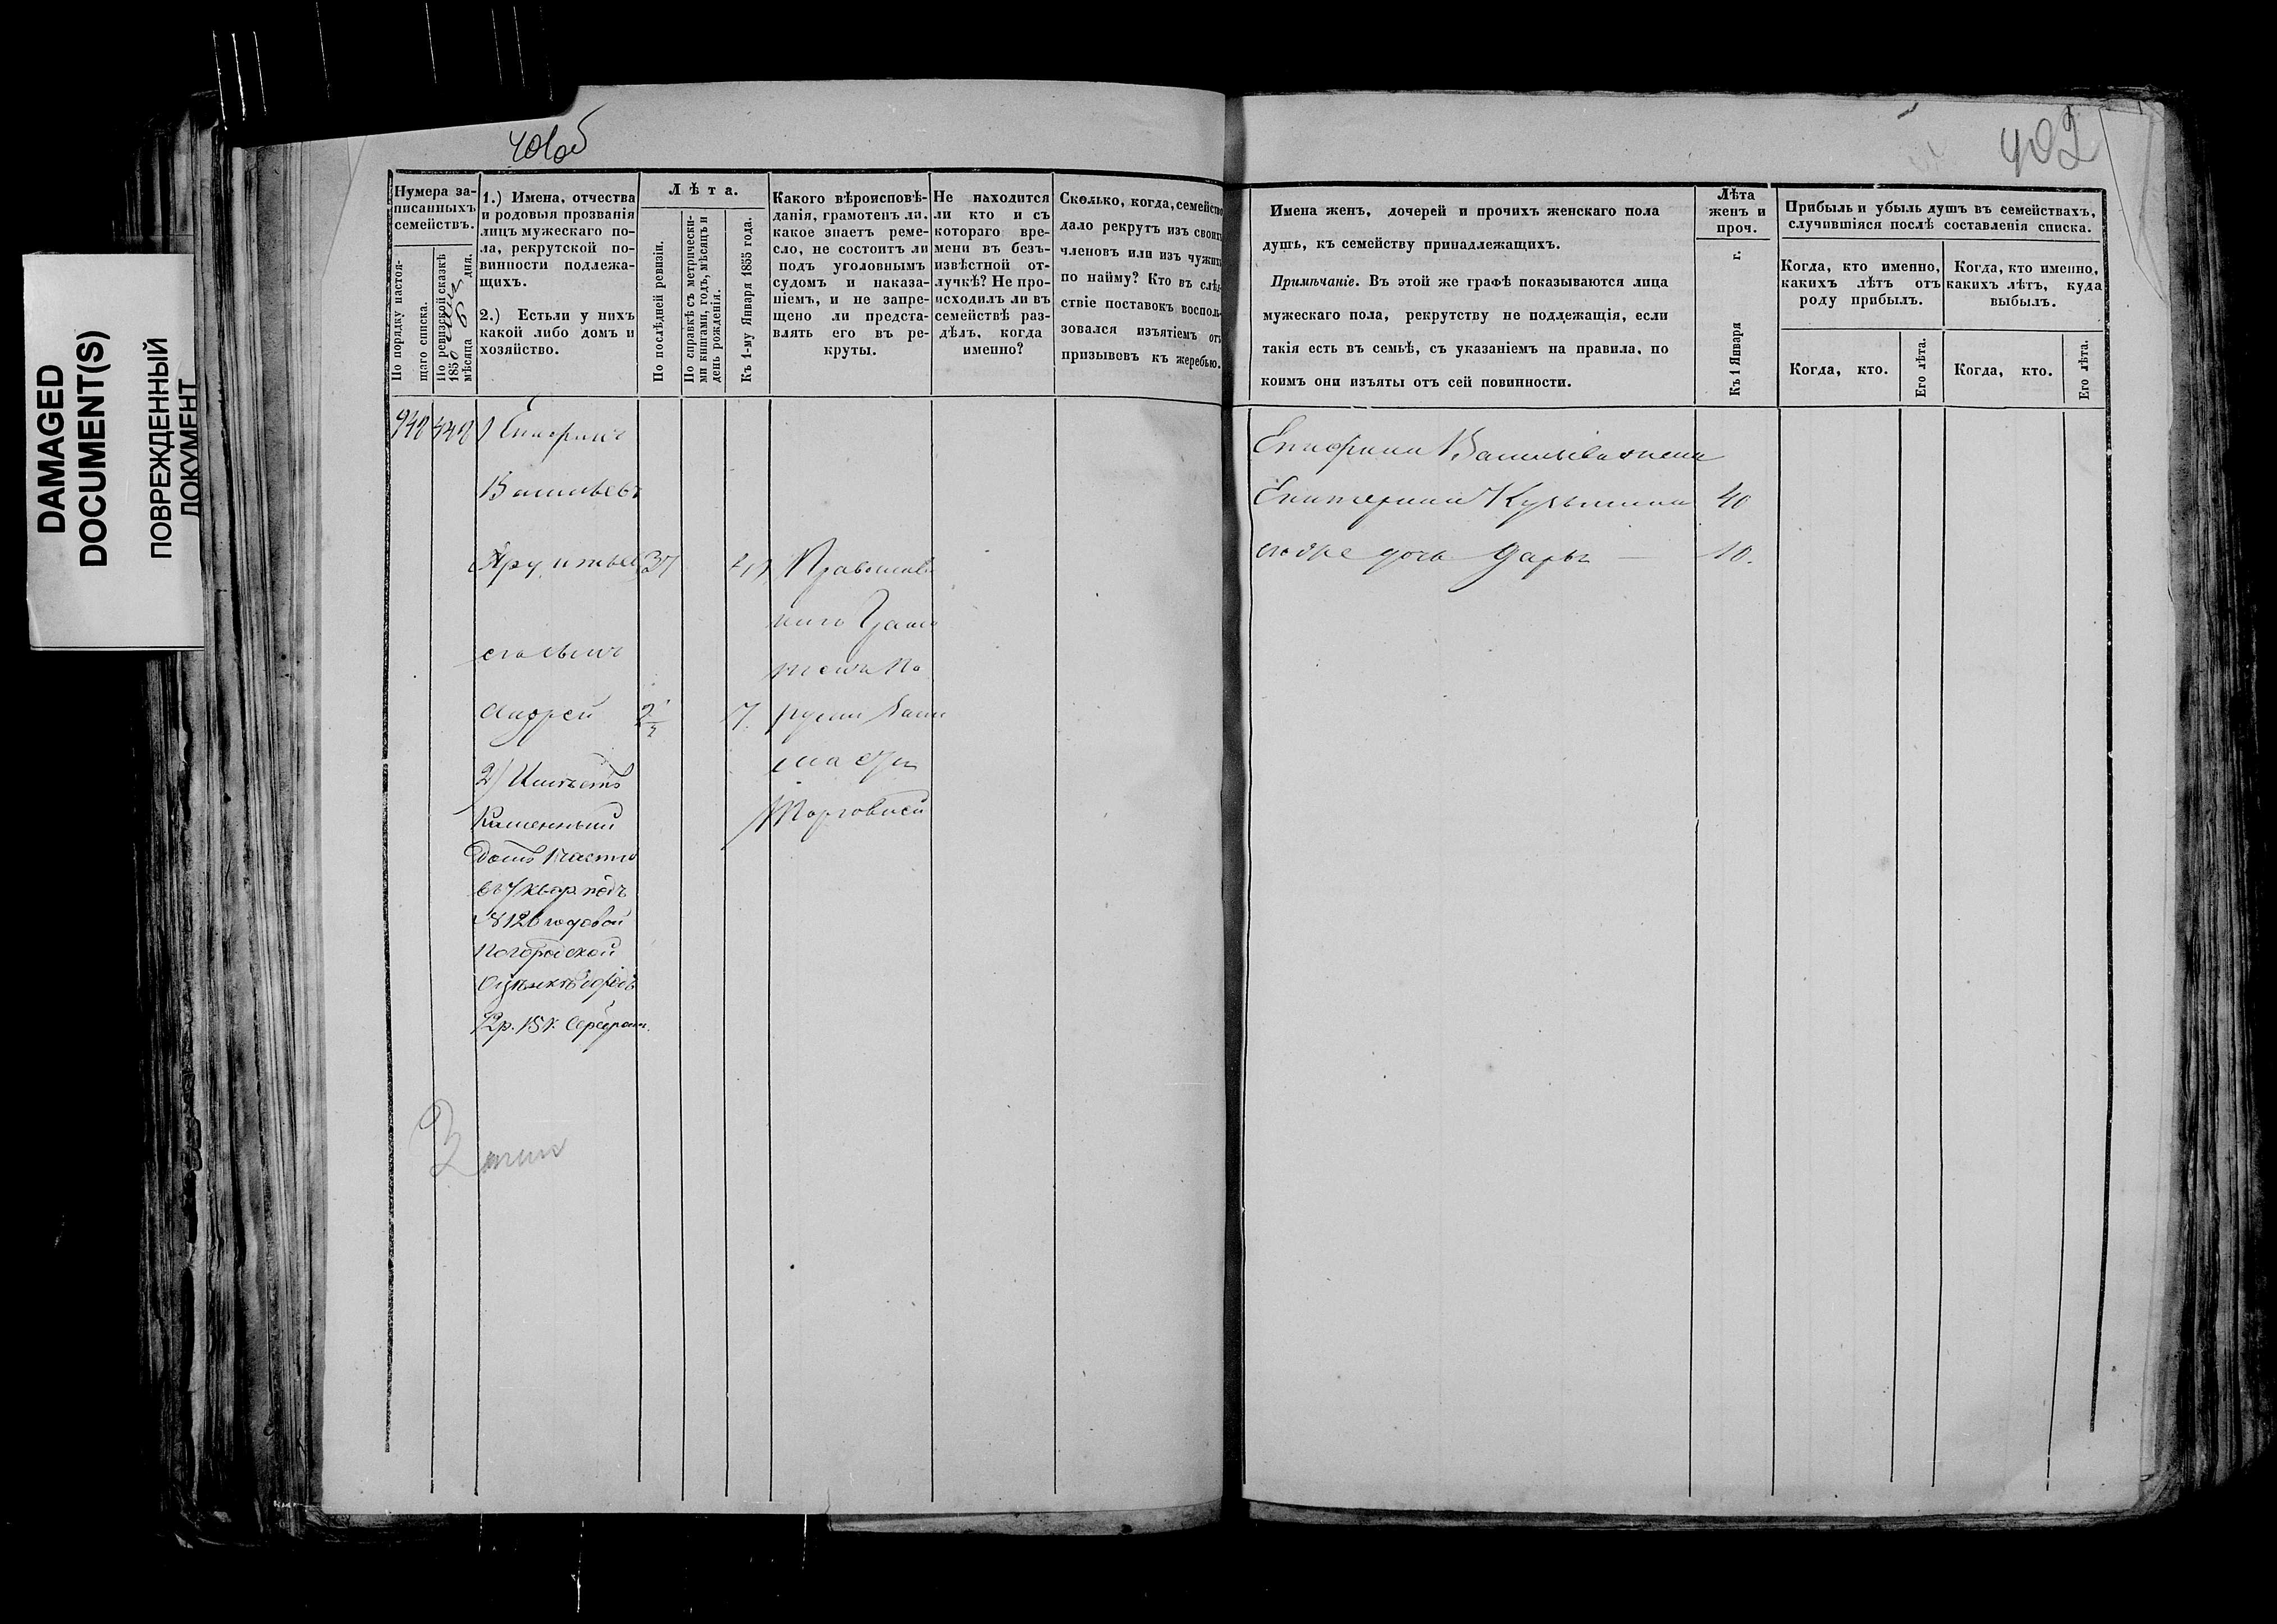 DAMAGED
DOCUMENT(S)
ПОВРЕЖДЕННЫЙ
ДОКУМЕНТ
401об
Нумера за-
писанныхъ
семействъ.
По порядку настоя-
щаго списка.
По ревизской сказкѣ
1850
мѣсяца 6 дня.
1.) Имена, отчества
и родовыя прозванія
лицъ мужескаго по-
ла, рекрутской по-
винности подлежа-
щихъ.
2.) Естьли у нихъ
какой либо домъ и
хозяйство.
Лѣта.
По послѣдней ревизіи.
По справкѣ съ метрически-
ми книгами, годъ, мѣсяцъ и
день рожденія.
Къ 1-му Января 1855 года.
Какого вѣроисповѣ-
данія, грамотенъ ли,
какое знаетъ реме-
сло, не состоитъ ли
подъ уголовнымъ
судомъ и наказа-
ніемъ, и не запре-
щено ли предста-
влять его въ ре-
круты.
Не находится
ли кто и съ
котораго вре-
мени въ безъ-
извѣстной от-
лучкѣ? Не про-
исходилъ ли въ
семействѣ раз-
дѣлъ, когда
именно?
Сколько, когда, семейство
дало рекрутъ изъ своихъ
членовъ или изъ чужихъ
по найму? Кто въ слѣд-
ствіе поставокъ восполь-
зовался изъятіемъ отъ
призывовъ къ жеребью.
940 440 1 Епифанъ
Васильевъ
37 41 Православ
наго Грамо
его сынъ
тенъ По
Андрей 2 7
2) Имѣетъ
Каменный
Торговлей
домъ 1 части
въ 4 квар. подъ
№ 126 годовой
Погородской
12р. 15к. Серебром.
402
Имена женъ, дочерей и прочихъ женскаго пола
душъ, къ семейству принадлежащихъ.
Примѣчаніе. Въ этой же графѣ показываются лица
мужескаго пола, рекрутству не подлежащія, если
такія есть въ семьѣ, съ указаніемъ на правила, по
коимъ они изъяты отъ сей повинности.
Лѣта
женъ и
проч.
Къ 1 Января г.
Прибыль и убыль душъ въ семействахъ,
случившіяся послѣ составленія списка.
Когда, кто именно,
какихъ лѣтъ отъ
роду прибылъ.
Когда, кто именно,
какихъ лѣтъ, куда
выбылъ.
Когда, кто.
Его лѣта.
Когда, кто.
Его лѣта.
Епифана Васильева жена
Екатерина Кузьмина 40
дочь Дарья 10.